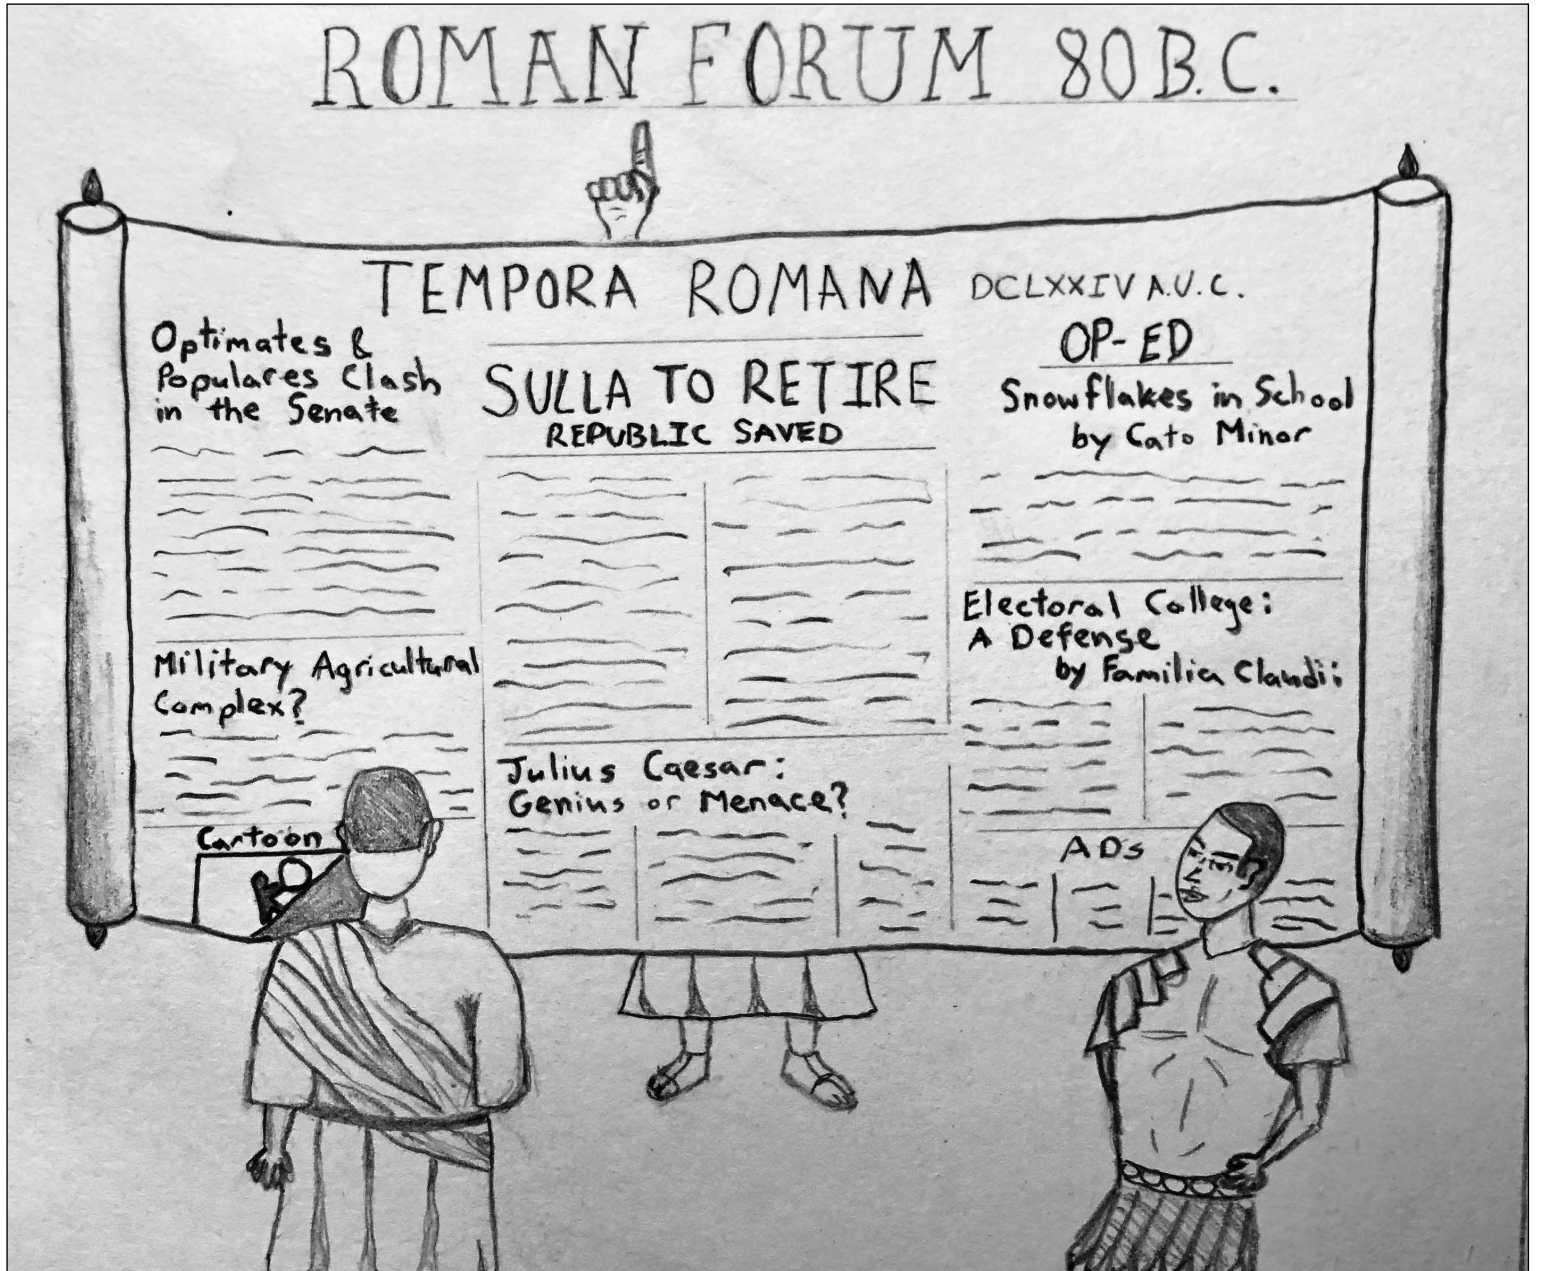 ROMAN FORUM 80 B.C.
TEMPORA ROMANA DCLXXIV A.U.C.
Optimates &
Populares Clash
in the Senate
Military Agricultural
Complex?
Cartoon
SULLA TO RETIRE
REPUBLIC SAVED
Julius Caesar:
Genius or Menace?
OP-ED
Snowflakes in School
by Cato Minor
Electoral College:
A Defense
by Familia Claudii
ADs